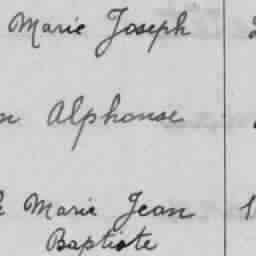 Marie Joseph
Alphonse
Marie Jean
Baptiste